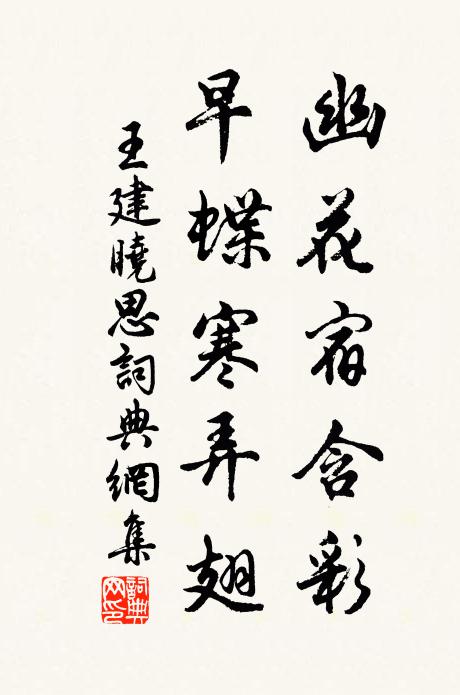 幽花宿含彩
早蝶寒弄翅
王建曉思詞典網集
詞典网印